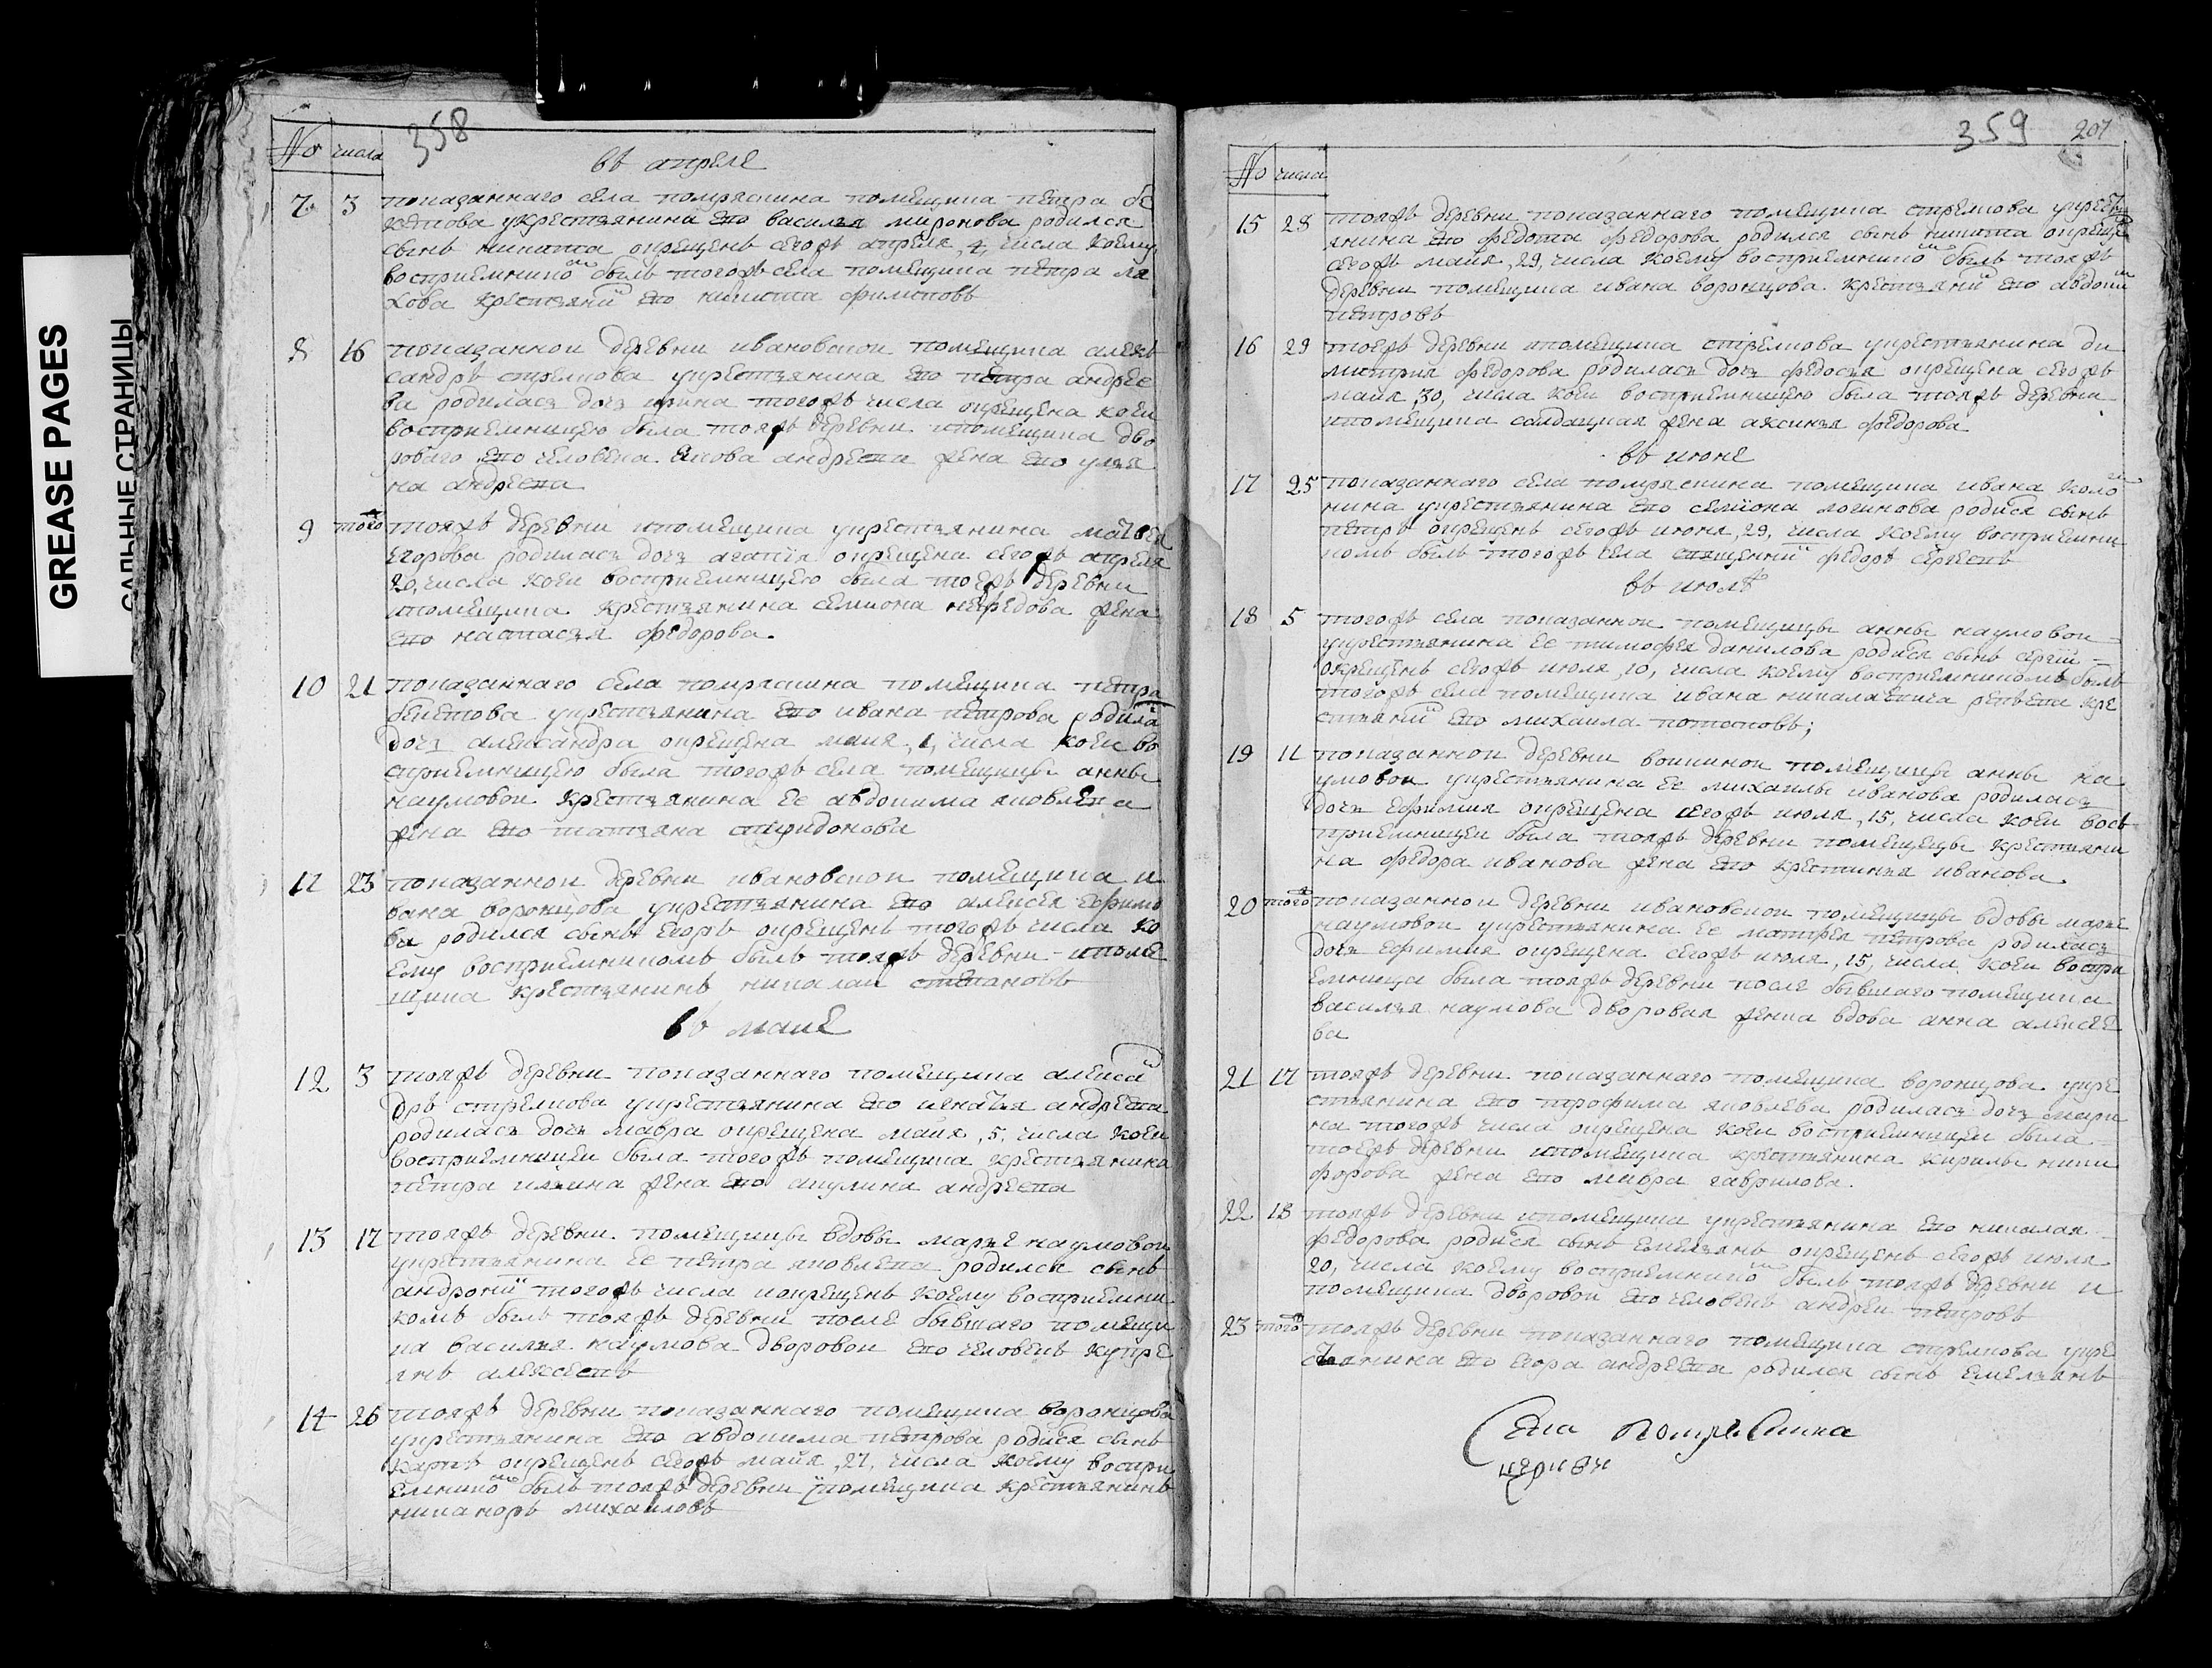 GREASE PAGES
САЛЬНЫЕ СТРАНИЦЫ
358
No числа
въ апреле
7 3 показаннаго села помряскина помещика петра бе
кетова укрестьянина ево василья миронова родился
сынъ никита окрещенъ сегожъ апреля, 4, числа коему
восприемнико̑ былъ тогожъ села помещика петра ля
хова крестьяни̑ ево никита филиповъ
8 16 показаннои деревни ивановскои помещика алекъ
сандръ стрелкова укрестьянина ево петра андрее
ва родилась дочь ирина тогожъ числа окрещена коеи
восприемницею была тояжъ деревни ипомещика дво
роваго ево человека якова андреева жена ево улья
на андреева
9 того тояжъ деревни ипомещика укрестьянина матвея
егорова родилась дочь агапия окрещена сегожъ апреля
20, числа коеи восприемницею была тоежъ деревни
ипомещика крестьянина семиона нефедова жена
ево настасья федорова.
10 21 показаннаго села помряскина помещика петра
бекетова укрестьянина ево ивана петрова родила
дочь александра окрещена маия, 1, числа коеи во
сприемницею была тогожъ села помещицы анны
наумовои крестьянина ее авдокима яковлева
жена ево татьяна спиридонова
11 23 показаннои деревни ивановскои помещика и
вана воронцова укрестьянина ево алексея ефимо
ва родился сынъ егоръ окрещенъ тогожъ числа ко
ему восприемникомъ былъ тояжъ деревни ипоме
щика крестьянинъ николаи степановъ
въ маие
12 3 тояжъ деревни показаннаго помещика алекса
дръ стрелкова укрестьянина ево игнатья андреева
родилась дочь мавра окрещена маия, 5, числа коеи
восприемницеи была тогожъ помещика крестьянина
петра ильина жена ево акулина андреева
13 17 тояжъ деревни помещицы вдовы марье наумовои
укрестьянина ее петра яковлева родился сынъ
андрони̑ тогожъ числа иокрещенъ коему восприемни
комъ былъ тояжъ деревни после бывшаго помещи
ка василья наумова дворовои ево человекъ купре
янъ алексеевъ
14 26 тояжъ деревни показаннаго помещика воронцова
укрестьянина ево авдокима петрова родися сынъ
карпъ окрещенъ сегожъ маия, 27, числа коему воспри
емнико̑ былъ тояжъ деревни ипомещика крестьянинъ
никаноръ михаиловъ
359 207
No числа
15 28 тояжъ деревни показаннаго помещика стрелкова укресть
янина ево федота федорова родился сынъ никита окреще
сегожъ маия, 29, числа коему восприемнико̑ былъ тояжъ
деревни помещика ивана воронцова крестьяни̑ ево авдоки̑
петровъ
16 29 тоежъ деревни ипомещика стрелкова укрестьянина ди
митрия федорова родилась дочь федосья окрещена сегожъ
маия, 30, числа коеи восприемницею была тояжъ деревни
ипомещика салдацкая жена аксинья федорова
въ июне
17 25 показаннаго села помряскина помещика ивана коло
кина укрестьянина ево семиона логинова родися сынъ
петръ окрещенъ сегожъ июня, 29, числа коему восприемни
комъ былъ тогожъ села священни̑ федоръ сергеевъ
въ июлѣ
18 5 тогожъ села показаннои помещицы анны наумовои
укрестьянина ее тимофея данилова родися сынъ сергии
окрещенъ сегожъ июля, 10, числа коему восприемникомъ былъ
тогожъ села помещика ивана николаевича репьева кре
стьяни̑ ево михаила потоповъ;
19 11 показаннои деревни воикинои помещицы анны на
умовои укрестьянина ее михаилы иванова родилась
дочь ефимия окрещена сегожъ июля, 15, числа коеи вось
приемницеи была тояжъ деревни помещецы крестьяни
на федора иванова жена ево крестинья иванова
20 того показаннои деревни ивановскои помещицы вдовы марье
наумовои укрестьянина ее матфея петрова родилась
дочь ефимия окрещена сегожъ июля, 15, числа коеи воспри
емница была тояжъ деревни после бывшаго помещика
василья наумова дворовая женка вдова анна алексее
ва
21 17 тояжъ деревни показаннаго помещика воронцова укре
стьянина ево трофима яковлева родилась дочь мари
на тогожъ числа окрещена коеи восприемницеи была
тоежъ деревни ипомещика крестьянина кирилы ники
форова жена ево мавра гаврилова.
22 18 тояжъ деревни ипомещика укрестьянина ево николая
федорова родися сынъ емельянъ окрещенъ сегожъ июля
20, числа коему восприемнико̑ былъ тояжъ деревни и
помещика дворовои ево человекъ андреи петровъ
23 того тояжъ деревни показаннаго помещика стрелкова укре
стьянина ево егора андреева родился сынъ емельянъ
Села Помряскина